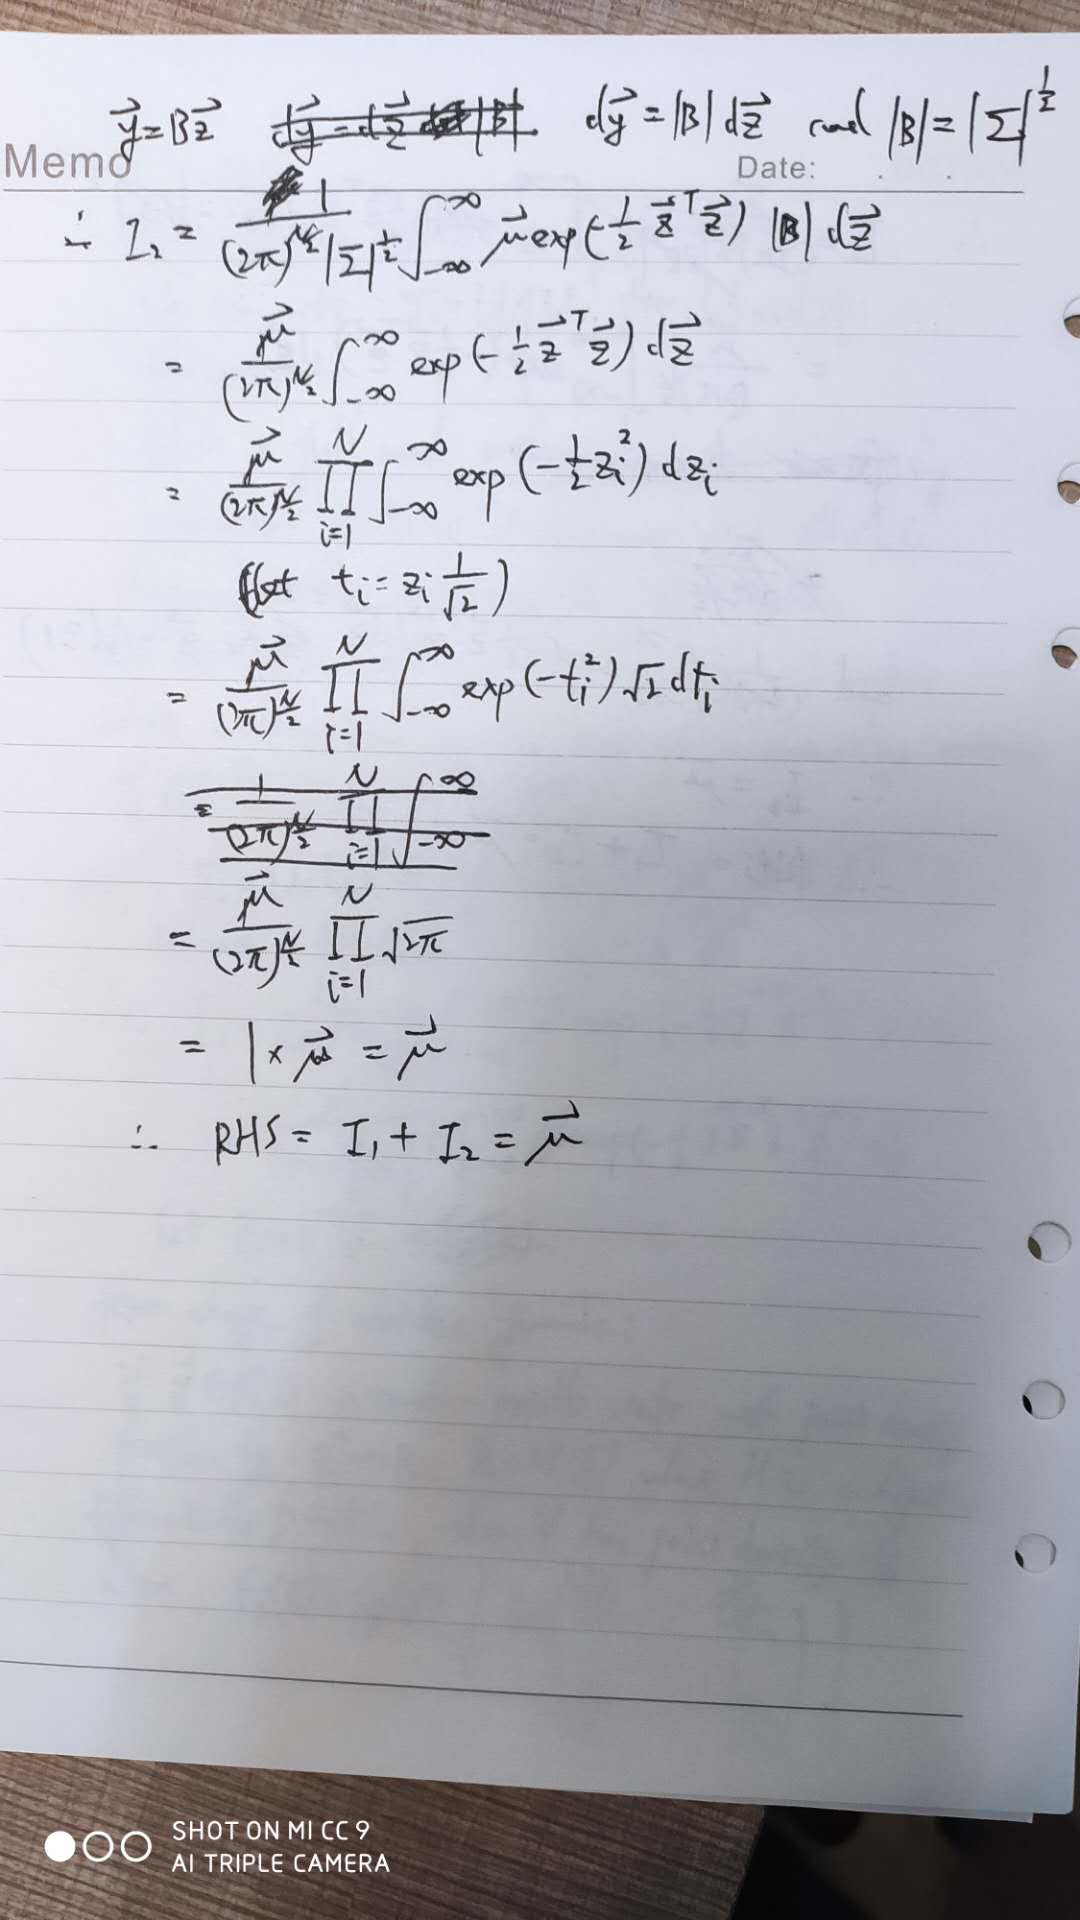 y⃗ = Bz⃗ dy⃗ = dz⃗ |B|. dy⃗ = |B| dz⃗ and |B| = |Σ|^{1/2}
Memo Date: . .
∴ I₂ = 1/((2π)^{N/2} |Σ|^{1/2}) ∫_{-∞}^{∞} μ⃗ exp(-1/2 z⃗^T z⃗) |B| dz⃗
= μ⃗/(2π)^{N/2} ∫_{-∞}^{∞} exp(-1/2 z⃗^T z⃗) dz⃗
= μ⃗/(2π)^{N/2} ∏_{i=1}^{N} ∫_{-∞}^{∞} exp(-1/2 z_i²) dz_i
(let t_i = z_i 1/√2)
= μ⃗/(2π)^{N/2} ∏_{i=1}^{N} ∫_{-∞}^{∞} exp(-t_i²) √2 dt_i
= 1/(2π)^{N/2} ∏_{i=1}^{N} ∫_{-∞}^{∞}
= μ⃗/(2π)^{N/2} ∏_{i=1}^{N} √2π
= 1 × μ⃗ = μ⃗
∴ RHS = I₁ + I₂ = μ⃗
SHOT ON MI CC 9
AI TRIPLE CAMERA